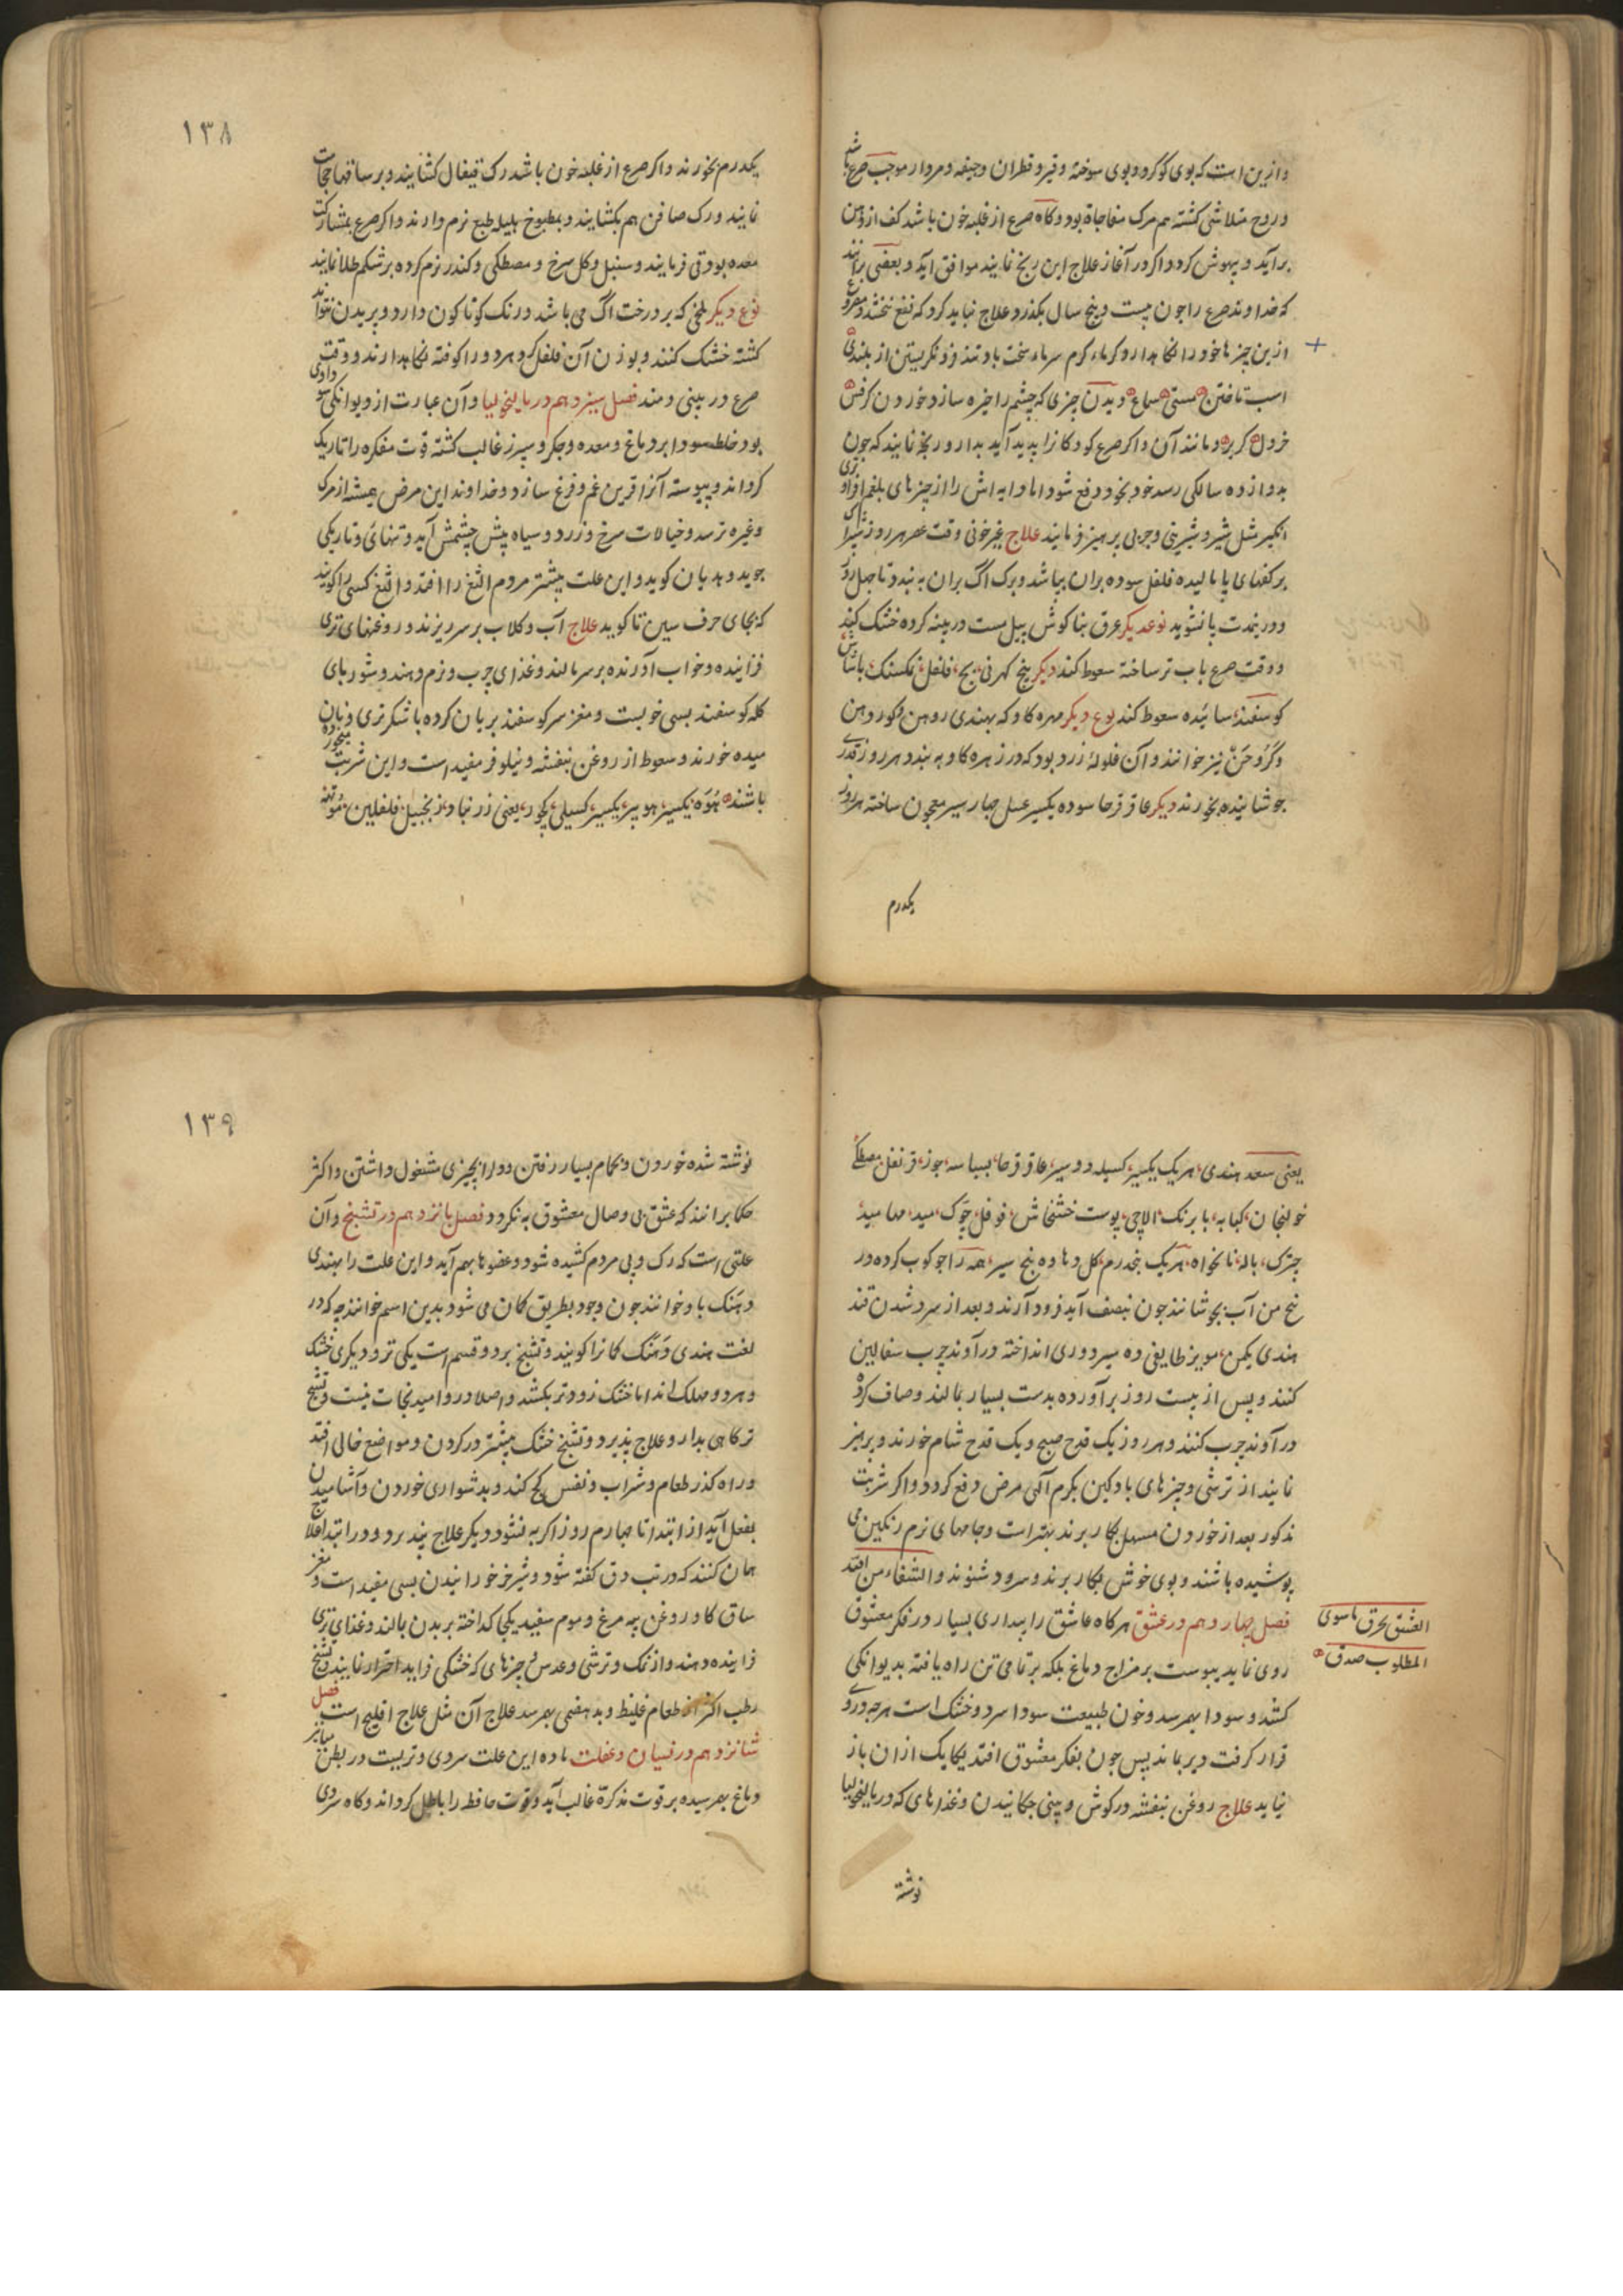 وازین است که بوی گوگرد و بوی سوخته و قیر و قطران و جیفه و مردار موجب صرع باشد
و روح متلاشی گشته هم مرگ مفاجاة بود و گاه صرع از غلبه خون باشد کف از دهن
برآید و بیهوش گردد اگر در آغاز علاج این رنج نمایند موافق آید و بعضی برانند
که خداوند صرع را چون بیست و پنج سال بگذرد علاج نباید کرد که نفع نبخشد و مصروع
ازین چیزها خود را نگاه دارد گرماء گرم سرماء سخت باد تند و نگریستن از بلندی
اسب تاختن مستی سماع دیدن چیزی که چشم را خیره سازد خوردن کرفس
خردل کرپزه و مانند آن و اگر صرع کودکان را پدید آید بدارو رنجه نمایند که چون
بدوازده سالگی رسد خود بخود دفع شود اما دایه اش را از چیزهای بلغم افزای
انگیز مثل شیر و شیرینی و چربی پرهیز فرمایند علاج غیر خونی وقت عصر هر روز شیر آک
بر کفهای پا مالیده فلفل سوده بران بپاشد و برگ آک بران به بندد تا چهل روز
و درینمدت پا نشوید نوعدیگر عرق بناگوش پیل مست در پنبه کرده خشک کنند
و وقت صرع بآب تر ساخته سعوط کند دیگر بیخ کهرنی بج فلفل نمکسنگ
گوسفند سائیده سعوط کند نوع دیگر مهره گاو که بهندی روهن و گوروهن
و گروحن نیز خوانند و آن غلوله زرد بود که در زهره گاو به بندد هر روز قدری
جوشانیده بخورند دیگر عاقرقرحا سوده یکسیر عسل چهار سیر معجون ساخته هر روز
یکدرم
۱۳۸
یکدرم بخورند و اگر صرع از غلبه خون باشد رگ قیفال کشایند و بر ساقها حجامت
نمایند و رگ صافن هم بکشایند و بمطبوخ هلیله طبع نرم دارند و اگر صرع بمشارکت
معده بود قی فرمایند و سنبل و گل سرخ و مصطکی و کندر نرم کرده بر شکم طلا نمایند
نوع دیگر ملخی که بر درخت آگ می باشد و رنگ گوناگون دارد و پریدن نتواند
کشته خشک کنند و بوزن آن فلفل گرد هر دو را کوفته نگاهدارند و وقت
صرع در بینی دمند فصل سیزدهم در مالیخولیا و آن عبارت از دیوانگی سوداوی
بود خلط سودا بر دماغ و معده و جگر و سپرز غالب گشته قوت مفکره را تاریک
گرداند و پیوسته آنرا قرین غم و فزع سازد و خداوند این مرض همیشه از مرگ
و غیره ترسد و خیالات سرخ و زرد و سیاه پیش چشمش آید و تنهائی و تاریکی
جوید و هذیان گوید و این علت بیشتر مردم الثغ را افتد و الثغ کسی را گویند
که بجای حرف سین تا گوید علاج آب و گلاب بر سر ریزند و روغنهای تری
فزاینده و خواب آورنده بر سر مالند و غذای چرب و نرم دهند و شوربای
کله گوسفند بسی خوبست و مغز سر گوسفند بریان کرده با شکر تری و نان
میده خورند و سعوط از روغن بنفشه و نیلوفر مفید است و این شربت میخورده
باشند هوه یکسیر هوبیر یکسیر کسیلی کچور یعنی زرنباد زنجبیل فلفلین موتهه
یعنی سعد هندی هر یک یکسیر کسیله دو سیر عاقرقرحا بسباسه جوز قرنفل مصطکی
خولنجان کبابه بابرنگ الاچی پوست خشخاش فوفل چوک مید مهامید
چترک باله نانخواه هر یک پنجدرم گل دهاوه پنج سیر همه را جوکوب کرده در
پنج من آب بجوشانند چون بنصف آید فرود آرند و بعد از سرد شدن قند
هندی یکمن مویز طایفی ده سیر دروی انداخته در آوند چرب سفالین
کنند و پس از بیست روز برآورده بدست بسیار بمالند و صاف کرده
در آوند چرب کنند و هر روز یک قدح صبح و یک قدح شام خورند و پرهیز
نمایند از ترشی و چیزهای بادگین بکرم آلهی مرض دفع گردد و اگر شربت
مذکور بعد از خوردن مسهل بکار برند بهتر است و جامهای نرم رنگین می
پوشیده باشند و بوی خوش بکار برند و سرود شنوند والشفاء من الله
فصل چهاردهم در عشق هرگاه عاشق را بیداری بسیار در فکر معشوق
العشق یحرق ماسوی
المطلوب صدق
روی نماید یبوست بر مزاج دماغ بلکه بر تمامی تن راه یافته بدیوانگی
کشد و سودا بهم رسد و چون طبیعت سودا سرد و خشک است هر چه در وی
قرار گرفت دیر بماند پس چون بفکر معشوق افتد یکایک ازان باز
نیاید علاج روغن بنفشه در گوش و بینی چکانیدن و غذاهای که در مالیخولیا
نوشته
۱۳۹
نوشته شده خوردن و بحمام بسیار رفتن و او را بچیزی مشغول داشتن و اکثر
حکما برانند که عشق بی وصال معشوق به نگردد فصل پانزدهم در تشنج و آن
علتی است که رگ و پی مردم کشیده شود و عضوها بهم آید و این علت را بهندی
دهنک باد خوانند چون وجود بطریق کمان می شود بدین اسم خوانند چه که در
لغت هندی دهنک کمان را گویند و تشنج بر دو قسم است یکی تر و دیگری خشک
و هر دو مهلک اند اما خشک زودتر بکشد و اصلا در وامید نجات نیست و تشنج
تر گاهی بدارو علاج پذیرد و تشنج خشک بیشتر در گردن و مواضع خالی افتد
و راه گذر طعام و شراب و نفس کج کند و بدشواری خوردن و آشامیدن
بفعل آید از ابتدا تا چهارم روز اگر به نشود دیگر علاج نپذیرد و در ابتدا علاج
همان کنند که در تب دق گفته شود و شیر خر خورانیدن بسی مفید است و مغز
ساق گاو و روغن پیه مرغ و موم سفید یکجا گداخته بر بدن بمالند و غذای تری
فزاینده دهند و از نمک و ترشی و عدس و چیزهای که خشکی فزاید احتراز نمایند و تشنج
رطب اکثر از طعام غلیظ و بدهضمی بهم رسد علاج آن مثل علاج افلیج است فصل
شانزدهم در نسیان و غفلت ماده این علت سردی و تریست در بطن
دماغ بهم رسیده بر قوت مذکره غالب آید و قوت حافظه را باطل گرداند و گاه سردی